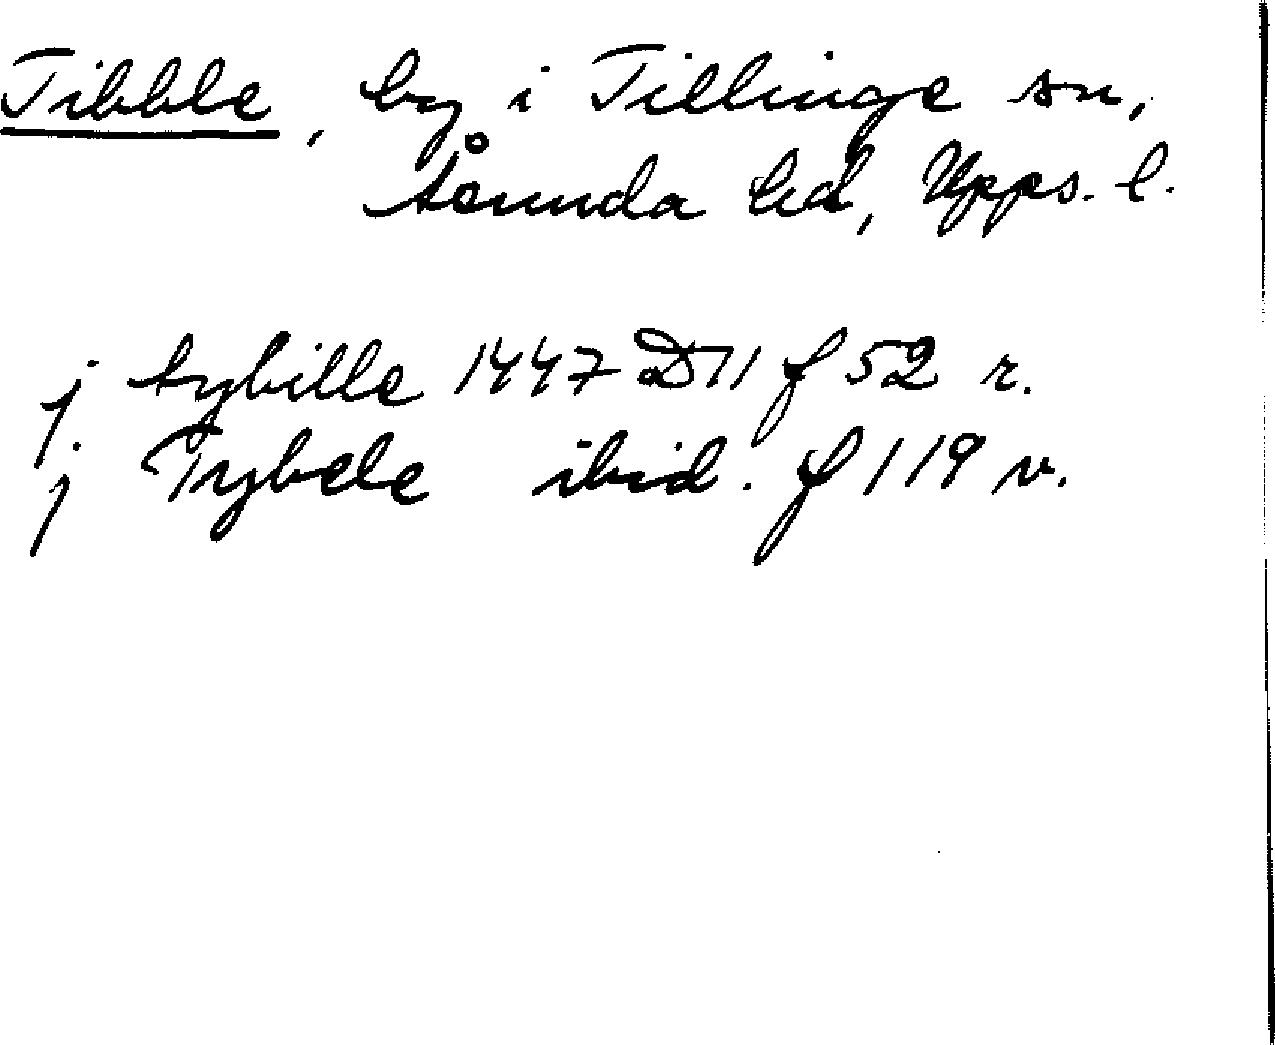 Tibble, by i Tillinge sn,
Åsunda hd, Upps. l.
j tybille 1447 D 11 f 52 r.
j Tybele ibid. f 119 v.